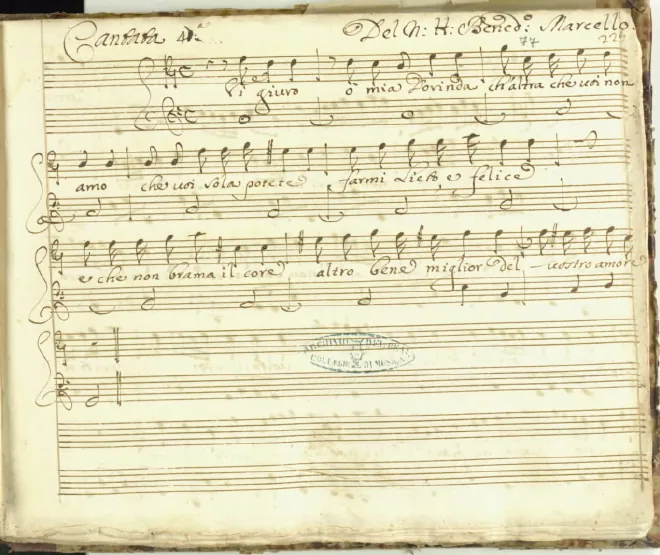 Cantata 4.ª Del N: H: Bened:º Marcello.
77 22
Vi giuro ò mia Dorinda ch'altra che voi non
amo che voi sola potete farmi Lieto e felice
e che non brama il core altro bene miglior del - vostro amore
ARCHIVIO DEL REAL
COLLEGIO DI MUSICA